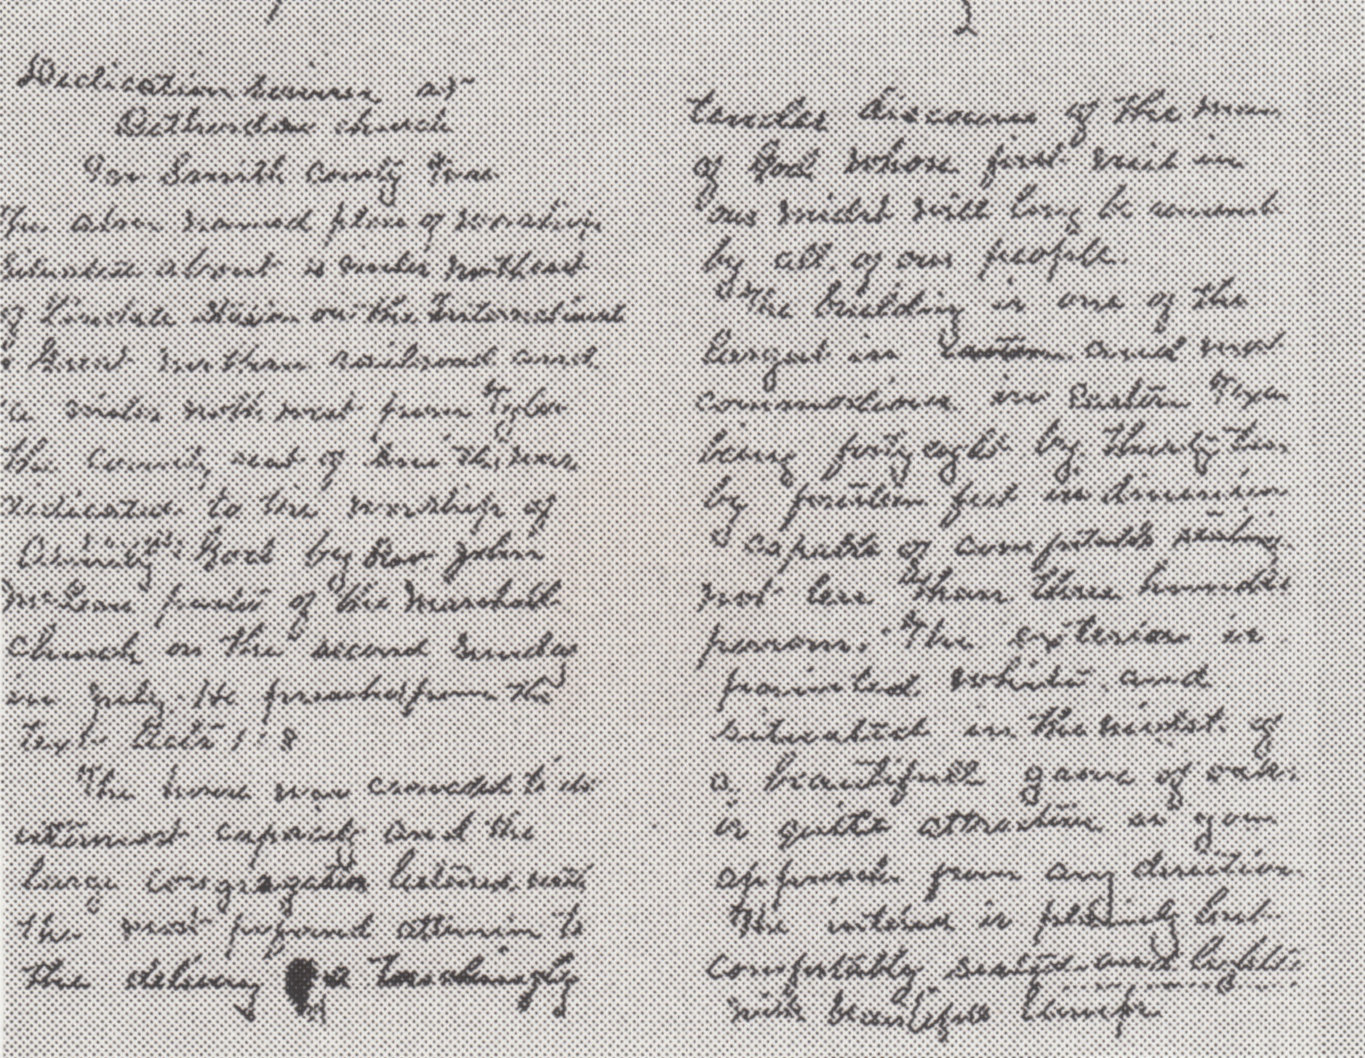 Dedication services at
church
In Smith County Texas
The above named place of worship
situated about miles northeast
of Lindale Station on the International
& Great northern railroad and
miles north west from Tyler
the County seat of Smith, was
dedicated to the worship of
God by Rev John
McLean pastor of the Marshall
church on the second Sunday
in July. He preached from the
text Acts 1:8
The house was crowded to its
utmost capacity and the
large congregation listened with
the most profound attention to
the delivery of a touchingly
2
tender discourse of the man
of God whose first visit in
our midst will long be rememb
by all of our people.
The building is one of the
largest in eastern and most
commodious in Eastern Texas
being forty eight by thirty two
by fourteen feet in dimension
capable of comfortable seating
not less than three hundred
persons. The exterior is
painted white and
situated in the midst of
a beautifull grove of oaks
is quite attractive as you
approach from any direction
The interior is plainly but
comfortably seated and lighted
with beautiful lamps